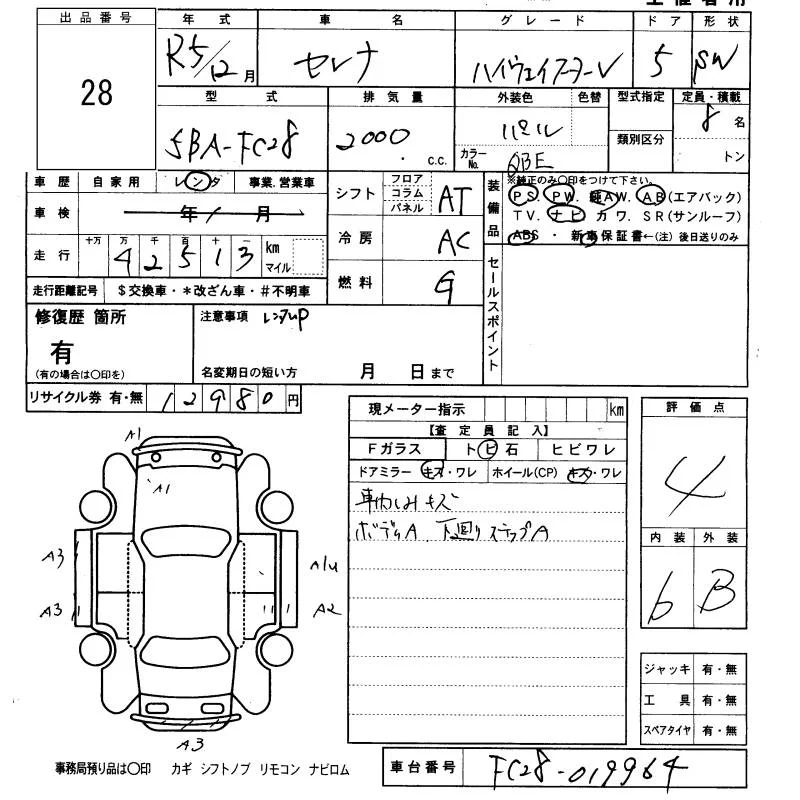 出品番号 年式 車名 グレード ドア 形状
28 R5/12月 セレナ ハイウェイスターV 5 SW
型式 排気量 外装色 色替 型式指定 定員・積載
5BA-FC28 2000 c.c. パール 8名
カラーNo. QBE 類別区分 トン
車歴 自家用 レンタ 事業.営業車
シフト フロア コラム パネル AT
装備品 ※純正のみ〇印をつけて下さい。
PS. PW. 純AW. AB(エアバック)
TV. ナビ カワ. SR(サンルーフ)
ABS ・ 新車保証書←(注) 後日送りのみ
車検 年 月
冷房 AC
走行 十万 万 千 百 十 一
4 2 5 1 3 km マイル
燃料 G
セールスポイント
走行距離記号 $交換車・*改ざん車・#不明車
修復歴 箇所 注意事項 レンタUP
有
(有の場合は〇印を) 名変期日の短い方 月 日まで
リサイクル券 有・無 12980円
現メーター指示 km
【査定員記入】
Fガラス トビ石 ヒビワレ
ドアミラー キズ・ワレ ホイール(CP) キズ・ワレ
ボディA 下回り ステップA
評価点
4
内装 外装
6 B
A1
A1
A3 A1u
A3 A2
A3
ジャッキ 有・無
工具 有・無
スペアタイヤ 有・無
事務局預り品は〇印 カギ シフトノブ リモコン ナビロム
車台番号 FC28-019964